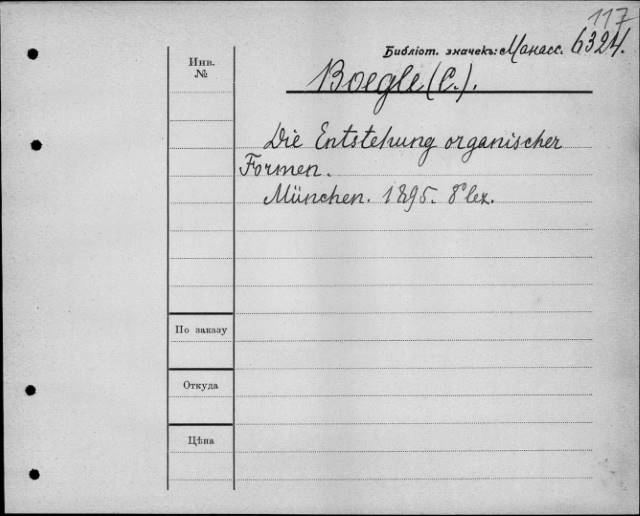 117
Библіот. значекъ: Манасс. 6324.
Инв.
№
Boegle (C.).
Die Entstehung organischer
Formen.
München. 1895. 8° lex.
По заказу
Откуда
Цѣна